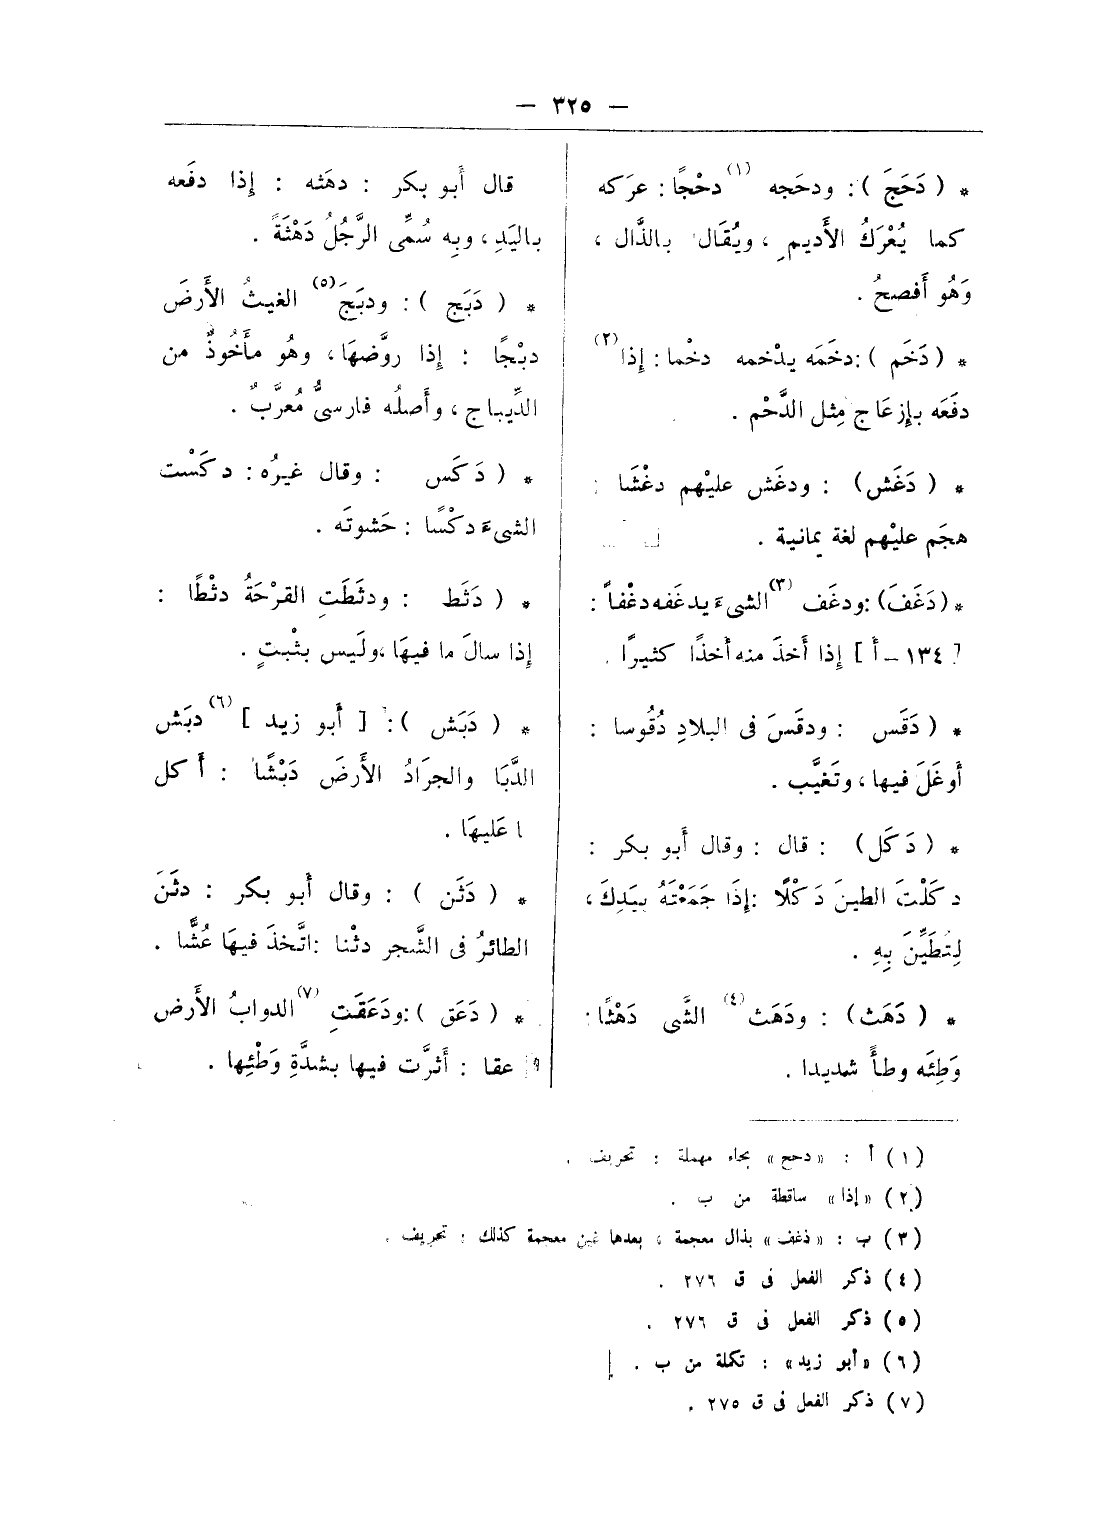 — ٣٢٥ —
* ( دَحَجَ ) : ودحَجه (١) دحْجًا : عرَكه
كما يُعْرَكُ الأَديم ، ويُقَال بالذَّال ،
وَهُو أَفصحُ .
* ( دَخَم ) : دخَمَه يدْخمه دخْما : إذا (٢)
دفَعَه بإزعَاج مِثل الدَّحْم .
* ( دَغَش ) : ودغَش عليْهم دغْشَا :
هجَم عليْهم لغة يمانية .
* ( دَغَفَ ) : ودغَف (٣) الشىءَ يدغَفه دغْفاً :
[ ١٣٤ – أ ] إذا أَخذَ منه أَخذًا كثيرًا .
* ( دَقَس : ودقَسَ فى البلادِ دُقُوسا :
أَوغَلَ فيها ، وتَغيَّب .
* ( دَكَل ) : قال : وقال أَبو بكر :
دكَلْتَ الطينَ دَكْلًا : إذَا جَمَعْتَهُ بيَدِكَ ،
لِتُطَيِّنَ بِهِ .
* ( دَهَث ) : ودَهَث (٤) الشَّى دَهْثًا :
وَطِئَه وطأً شديدا .
قال أَبو بكر : دهَثه : إِذا دفَعه
باليَدِ ، وبِه سُمِّى الرَّجُلُ دَهْثَةً .
* ( دَبَج ) : ودبَجَ (٥) الغيثُ الأَرضَ
دبْجًا : إِذا روَّضهَا ، وهُو مأخُوذٌ من
الدِّيباج ، وأَصلُه فارسىٌّ مُعرَّبٌ .
* ( دَكَس : وقال غيرُه : دكَسْت
الشىءَ دكْسًا : حَشوتَه .
* ( دَثَط : ودثَطَتِ القرْحَةُ دثْطًا :
إِذا سالَ ما فيهَا ، ولَيس بثْبتٍ .
* ( دَبَش ) : [ أَبو زيد ] (٦) دبَش
الدَّبَا والجرَادُ الأَرضَ دَبْشًا : أَكل
ا عَليهَا .
* ( دَثَن ) : وقال أَبو بكر : دثَنَ
الطائرُ فى الشَّجر دثْنا : اتَّخذَ فيهَا عُشًّا .
* ( دَعَق ) : ودَعَقَتِ (٧) الدوابُ الأَرض
عقا : أَثرَّت فيها بشدَّةِ وَطْئِها .
(١) أ : «دحح» بحاء مهملة : تحريف .
(٢) «إذا» ساقطة من ب .
(٣) ب : «ذغف» بذال معجمة ، بعدها غين معجمة كذلك : تحريف .
(٤) ذكر الفعل فى ق ٢٧٦ .
(٥) ذكر الفعل فى ق ٢٧٦ .
(٦) «أبو زيد» : تكملة من ب .
(٧) ذكر الفعل فى ق ٢٧٥ .